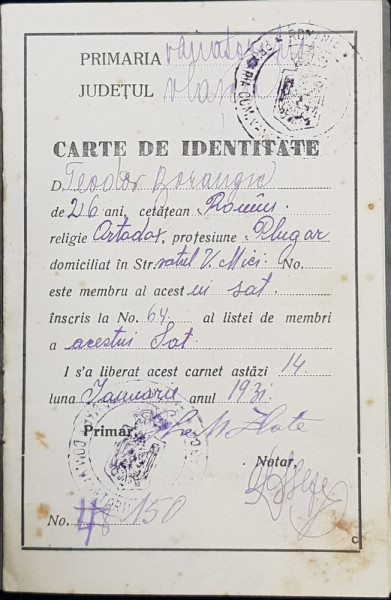 PRIMARIA
JUDEȚUL Vlașca
CARTE DE IDENTITATE
D. Teodor Zorangic
de 26 ani, cetățean Român
religie Ortodox, profesiune Plugar
domiciliat în Str. satul V. Mici No.
este membru al acest ui sat
înscris la No. 64 al listei de membri
a acestui Sat
I s'a liberat acest carnet astăzi 14
luna Ianuarie anul 1931
Primar, Zlote
Notar,
No. 150
C